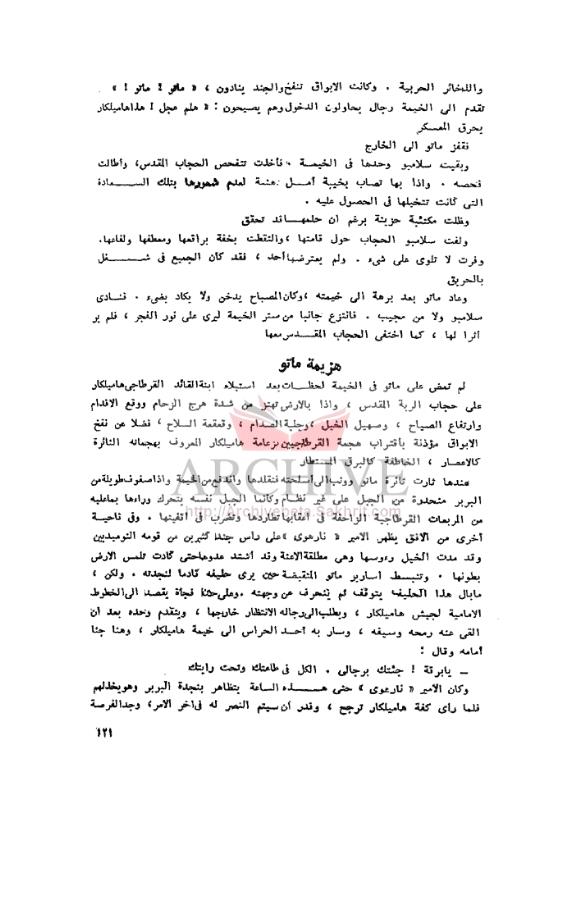 والذخائر الحربية . وكانت الابواق تنفخ والجند ينادون ، « ماتو ! ماتو ! »
تقدم الى الخيمة رجال يحاولون الدخول وهم يصيحون : « هلم عجل ! هذا هاميلكار
يحرق المعسكر
فقفز ماتو الى الخارج
وبقيت سلامبو وحدها فى الخيمة ، فأخذت تتفحص الحجاب المقدس، وأطالت
فحصه . واذا بها تصاب بخيبة أمل لعدم شعورها بتلك السعادة
التى كانت تتخيلها فى الحصول عليه .
وظلت مكتئبة حزينة برغم ان حلمها قد تحقق
ولفت سلامبو الحجاب حول قامتها ، والتقطت بخفة براقعها ومعطفها ولفاعها.
وفرت لا تلوى على شىء . ولم يعترضها أحد ، فقد كان الجميع فى شغل
بالحريق
وعاد ماتو بعد برهة الى خيمته ، وكان المصباح يدخن ولا يكاد يضىء . فنادى
سلامبو ولا من مجيب . فانتزع جانبا من ستر الخيمة ليرى على نور الفجر ، فلم ير
أثرا لها ، كما اختفى الحجاب المقدس معها
هزيمة ماتو
لم تمض على ماتو فى الخيمة لحظات بعد استيلاء ابنة القائد القرطاجى هاميلكار
على حجاب الربة المقدس ، واذا بالارض تهتز من شدة هرج الزحام ووقع الاقدام
وارتفاع الصياح ، وصهيل الخيل ، وجلبة الصدام ، وقعقعة السلاح ، فضلا عن نفخ
الابواق مؤذنة باقتراب هجمة القرطاجيين بزعامة هاميلكار المعروف بهجماته الثائرة
كالاعصار ، الخاطفة كالبرق المستطار
عندها ثارت ثائرة ماتو ووثب الى أسلحته فتقلدها واندفع من الخيمة واذا صفوف طويلة من
البربر منحدرة من الجبل على غير نظام وكأنما الجبل نفسه يتحرك وراءها بما عليه
من المربعات القرطاجية الزاحفة فى أعقابها تطاردها وتضرب فى أقفيتها . وفى ناحية
أخرى من الافق يظهر الامير « نارهوى » على رأس جند كثيرين من قومه النوميديين
وقد مدت الخيل رءوسها وهى مطلقة الاعنة وقد اشتد عدوها حتى كادت تلمس الارض
بطونها . وتنبسط أسارير ماتو المنقبضة حين يرى حليفه قادما لنجدته . ولكن ،
مابال هذا الحليف يتوقف ثم ينحرف عن وجهته . وعلى حين فجأة يقصد الى الخطوط
الامامية لجيش هاميلكار ، ويطلب الى رجاله الانتظار خارجها ، ويتقدم وحده بعد أن
القى عنه رمحه وسيفه ، وسار به أحد الحراس الى خيمة هاميلكار ، وهنا جثا
أمامه وقال :
ــ يابرقة ! جئتك برجالى . الكل فى طاعتك وتحت رايتك
وكان الامير « نارهوى » حتى هذه الساعة يتظاهر بنجدة البربر وهو يخذلهم
فلما رأى كفة هاميلكار ترجح ، وقدر أن سيتم النصر له فى آخر الامر، وجد الفرصة
١٢١
ARCHIVE
http://Archivebeta.Sakhrit.com